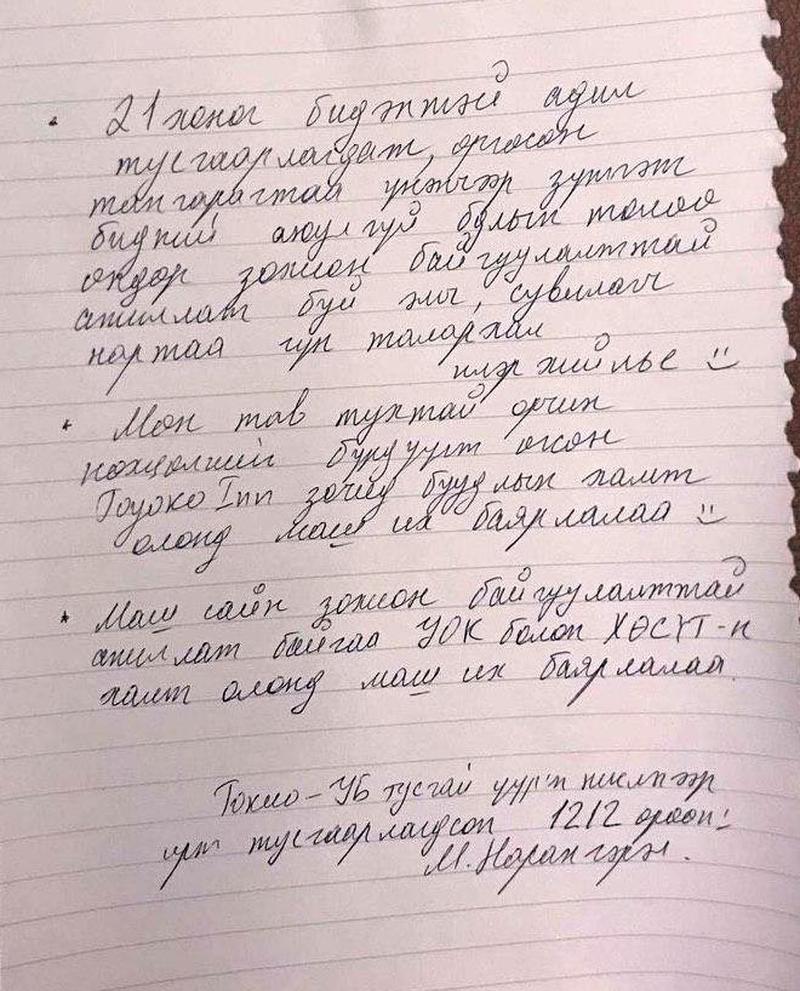 • 21 хоног бидэнтэй адил
тусгаарлагдаж, өргөсөн
тангарагтаа үнэнчээр зүтгэж
бидний аюулгүй бдлын төлөө
өндөр зохион байгуулалттай
ажиллаж буй эмч, сувилагч
нартаа гүн талархал
илэрхийлье :)
* Мөн тав тухтай орчин
нөхцөлийг бүрдүүлж өгсөн
Toyoko Inn зочид буудлын хамт
олонд маш их баярлалаа :)
* Маш сайн зохион байгуулалттай
ажиллаж байгаа УОК болон ХӨСҮТ-н
хамт олонд маш их баярлалаа.
Токио-УБ тусгай үүр'н нислэгээр
ирж тусгаарлагдсан 1212 өрөөн:
М. Нарангэрэл.